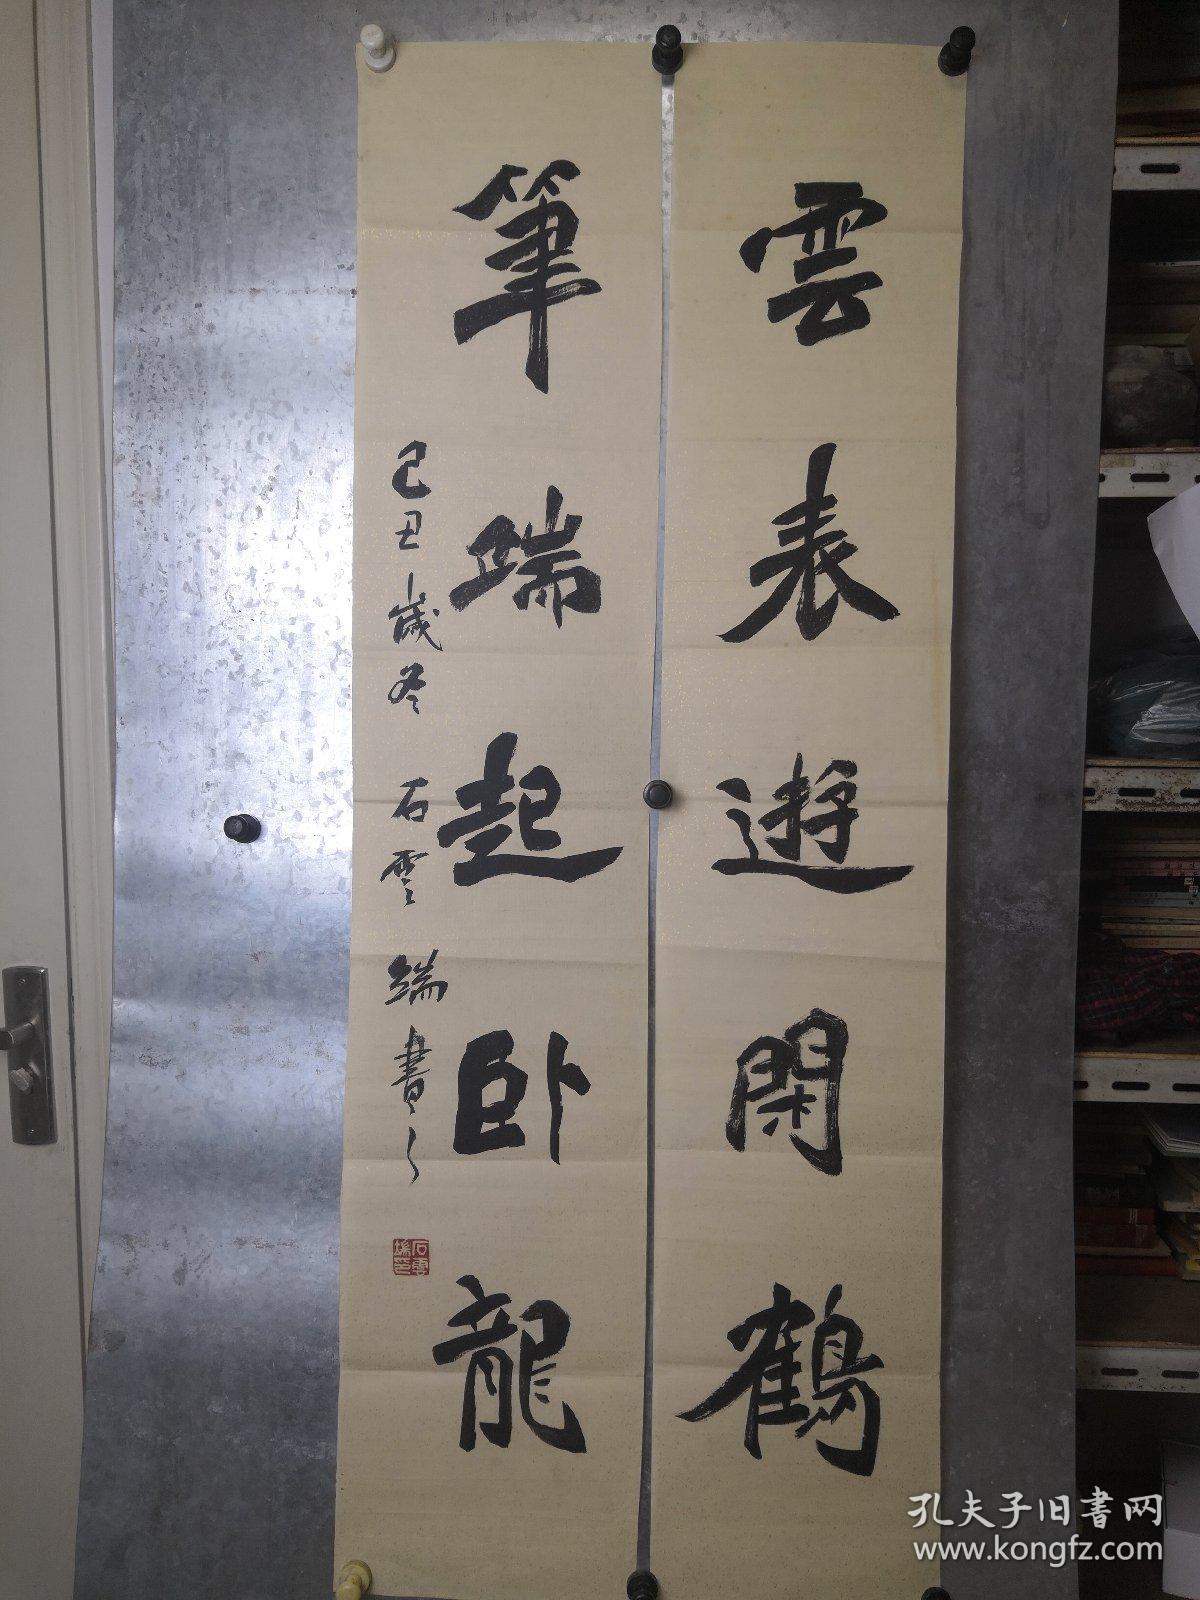 雲表遊閑鶴
筆端起卧龍
己丑歲冬 石雲端書之
石雲端印
孔夫子旧书网
www.kongfz.com